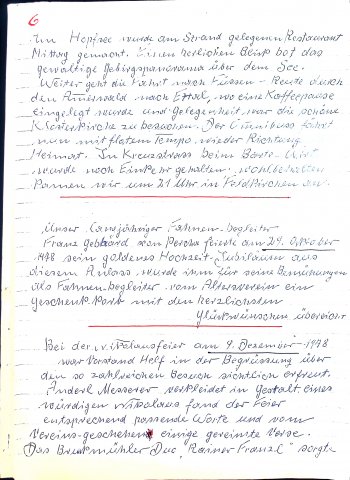 6
Im Hopfsee wurde am Strand gelegenen Restaurant
Mittag gemacht. Einen herlichen Blick bot das
gewaltige Gebirgspanorama über dem See.
Weiter geht die Fahrt nach Füssen - Reute durch
den Amerwald nach Ettal, wo eine Kaffeepause
eingelegt wurde und Gelegenheit war die schöne
Klosterkirche zu besuchen. Der Omnibuss fährt
nun mit flotem Tempo wieder Richtung
Heimat. In Kreuzstrass beim Bartl-Wirt
wurde noch Einkehr gehalten. Wohlbehalten
kamen wir um 21 Uhr in Feldkirchen an.
Unser langjähriger Fahnen-begleiter
Franz Gebhard von Percha feierte am 24. Oktober
1978 sein goldenes Hochzeit-Jubiläum aus
diesem Anlass wurde ihm für seine Bemühungen
als Fahnen-begleiter vom Altersverein ein
Geschenk Korb mit den herzlichsten
Glückwünschen übereicht
Bei der Nikolausfeier am 9. Dezember 1978
war Vorstand Helf in der Begrüssung über
den so zahlreichen Besuch sichtlich erfreut.
Anderl Messerer verkleidet in Gestalt eines
würdigen Nikolaus fand der Feier
entsprechend passende Worte und vom
Vereins-geschehen einige gereimte Verse.
Das Duo "Rainer Franzl" sorgte